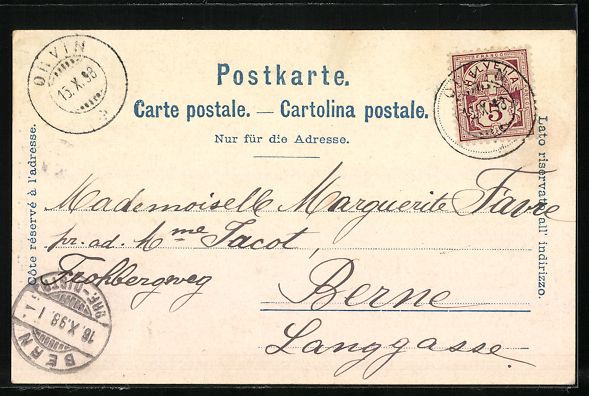 ORVIN
15.X.98
HELVETIA
FRANCO
5
ORVIN
15.X.98
Postkarte.
Carte postale. — Cartolina postale.
Nur für die Adresse.
Côte réservé à l'adresse.
Lato riservato all' indirizzo.
Mademoiselle Marguerite Favre
pr. ad. Mme Jacot,
Frohbergweg
Berne
Länggasse.
BERN
16.X.98.